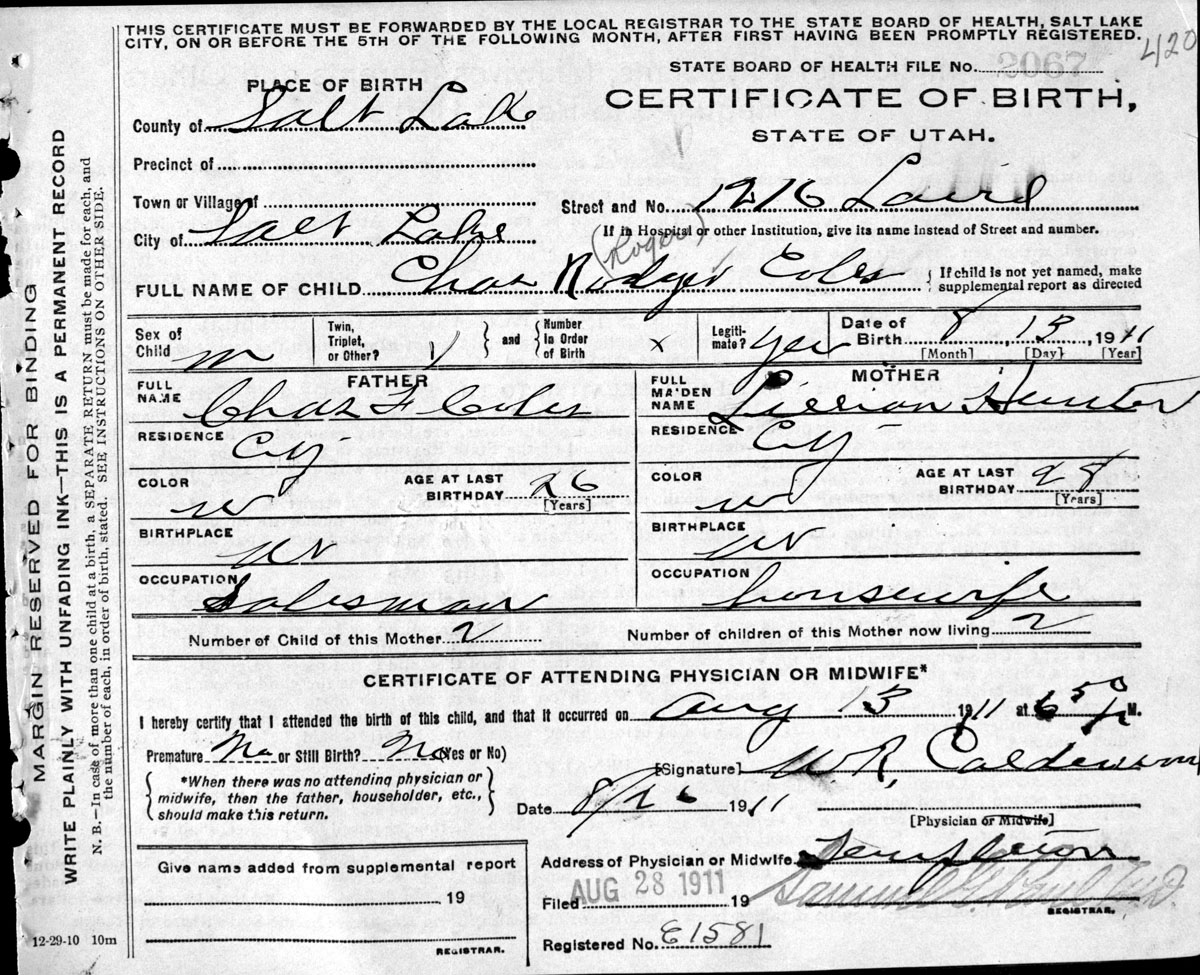 THIS CERTIFICATE MUST BE FORWARDED BY THE LOCAL REGISTRAR TO THE STATE BOARD OF HEALTH, SALT LAKE
CITY, ON OR BEFORE THE 5TH OF THE FOLLOWING MONTH, AFTER FIRST HAVING BEEN PROMPTLY REGISTERED.
420
STATE BOARD OF HEALTH FILE No. 2067
PLACE OF BIRTH
CERTIFICATE OF BIRTH,
STATE OF UTAH.
County of Salt Lake
Precinct of
Town or Village of
Street and No. 1216 Laird
City of Salt Lake
(If in Hospital or other Institution, give its name instead of Street and number.
(Roger)
FULL NAME OF CHILD Chas Rodger Coles
{ If child is not yet named, make
supplemental report as directed
Sex of Child m
Twin, Triplet, or Other? 1
and
Number In Order of Birth x
Legitimate? yes
Date of Birth 8, 13, 1911
[Month] [Day] [Year]
FATHER
FULL NAME Chas F Coles
RESIDENCE City
COLOR W
AGE AT LAST BIRTHDAY 26
[Years]
BIRTHPLACE Ut
OCCUPATION Salesman
MOTHER
FULL MAIDEN NAME Hunter
RESIDENCE City
COLOR W
AGE AT LAST BIRTHDAY 28
(Years)
BIRTHPLACE Ut
OCCUPATION housewife
Number of Child of this Mother 2
Number of children of this Mother now living 2
CERTIFICATE OF ATTENDING PHYSICIAN OR MIDWIFE*
I hereby certify that I attended the birth of this child, and that it occurred on Aug 13 1911 at 6 50 P M.
Premature No or Still Birth? No (Yes or No)
*When there was no attending physician or
midwife, then the father, householder, etc.,
should make this return.
[Signature] W R Calderwood
Date 8/26 1911
[Physician or Midwife]
Address of Physician or Midwife Templeton
Give name added from supplemental report
19
REGISTRAR.
Filed AUG 28 1911 19
Samuel G. Paul M.D.
REGISTRAR.
Registered No. E1581
12-29-10 10m
MARGIN RESERVED FOR BINDING
WRITE PLAINLY WITH UNFADING INK—THIS IS A PERMANENT RECORD
N. B.—In case of more than one child at a birth, a SEPARATE RETURN must be made for each, and
the number of each, in order of birth, stated. SEE INSTRUCTIONS ON OTHER SIDE.